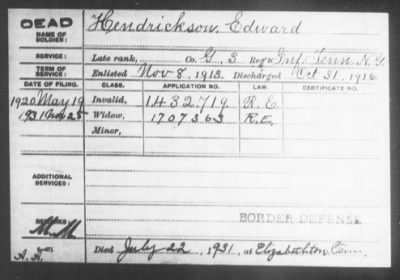 DEAD Hendrickson, Edward
NAME OF SOLDIER:
SERVICE: Late rank, Co. G, 3 Reg't Inf. Tenn. N. G.
TERM OF SERVICE: Enlisted Nov 8, 1913. Discharged Oct 31, 1916
DATE OF FILING. CLASS. APPLICATION NO. LAW. CERTIFICATE NO.
1920 May 19 Invalid, 1.432.719. R.E.
1931 Nov 25 Widow, 1707363 R.E.
Minor,
ADDITIONAL SERVICES:
REMARKS: BORDER DEFENSE
M.M.
A.A. Died July 22, 1931, at Elizabethton, Tenn.